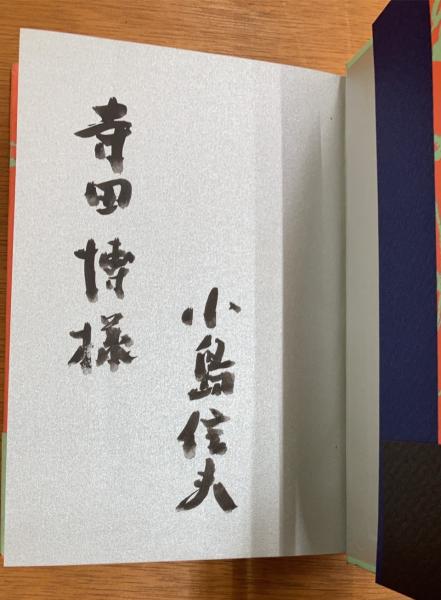 小島信夫
寺田博様